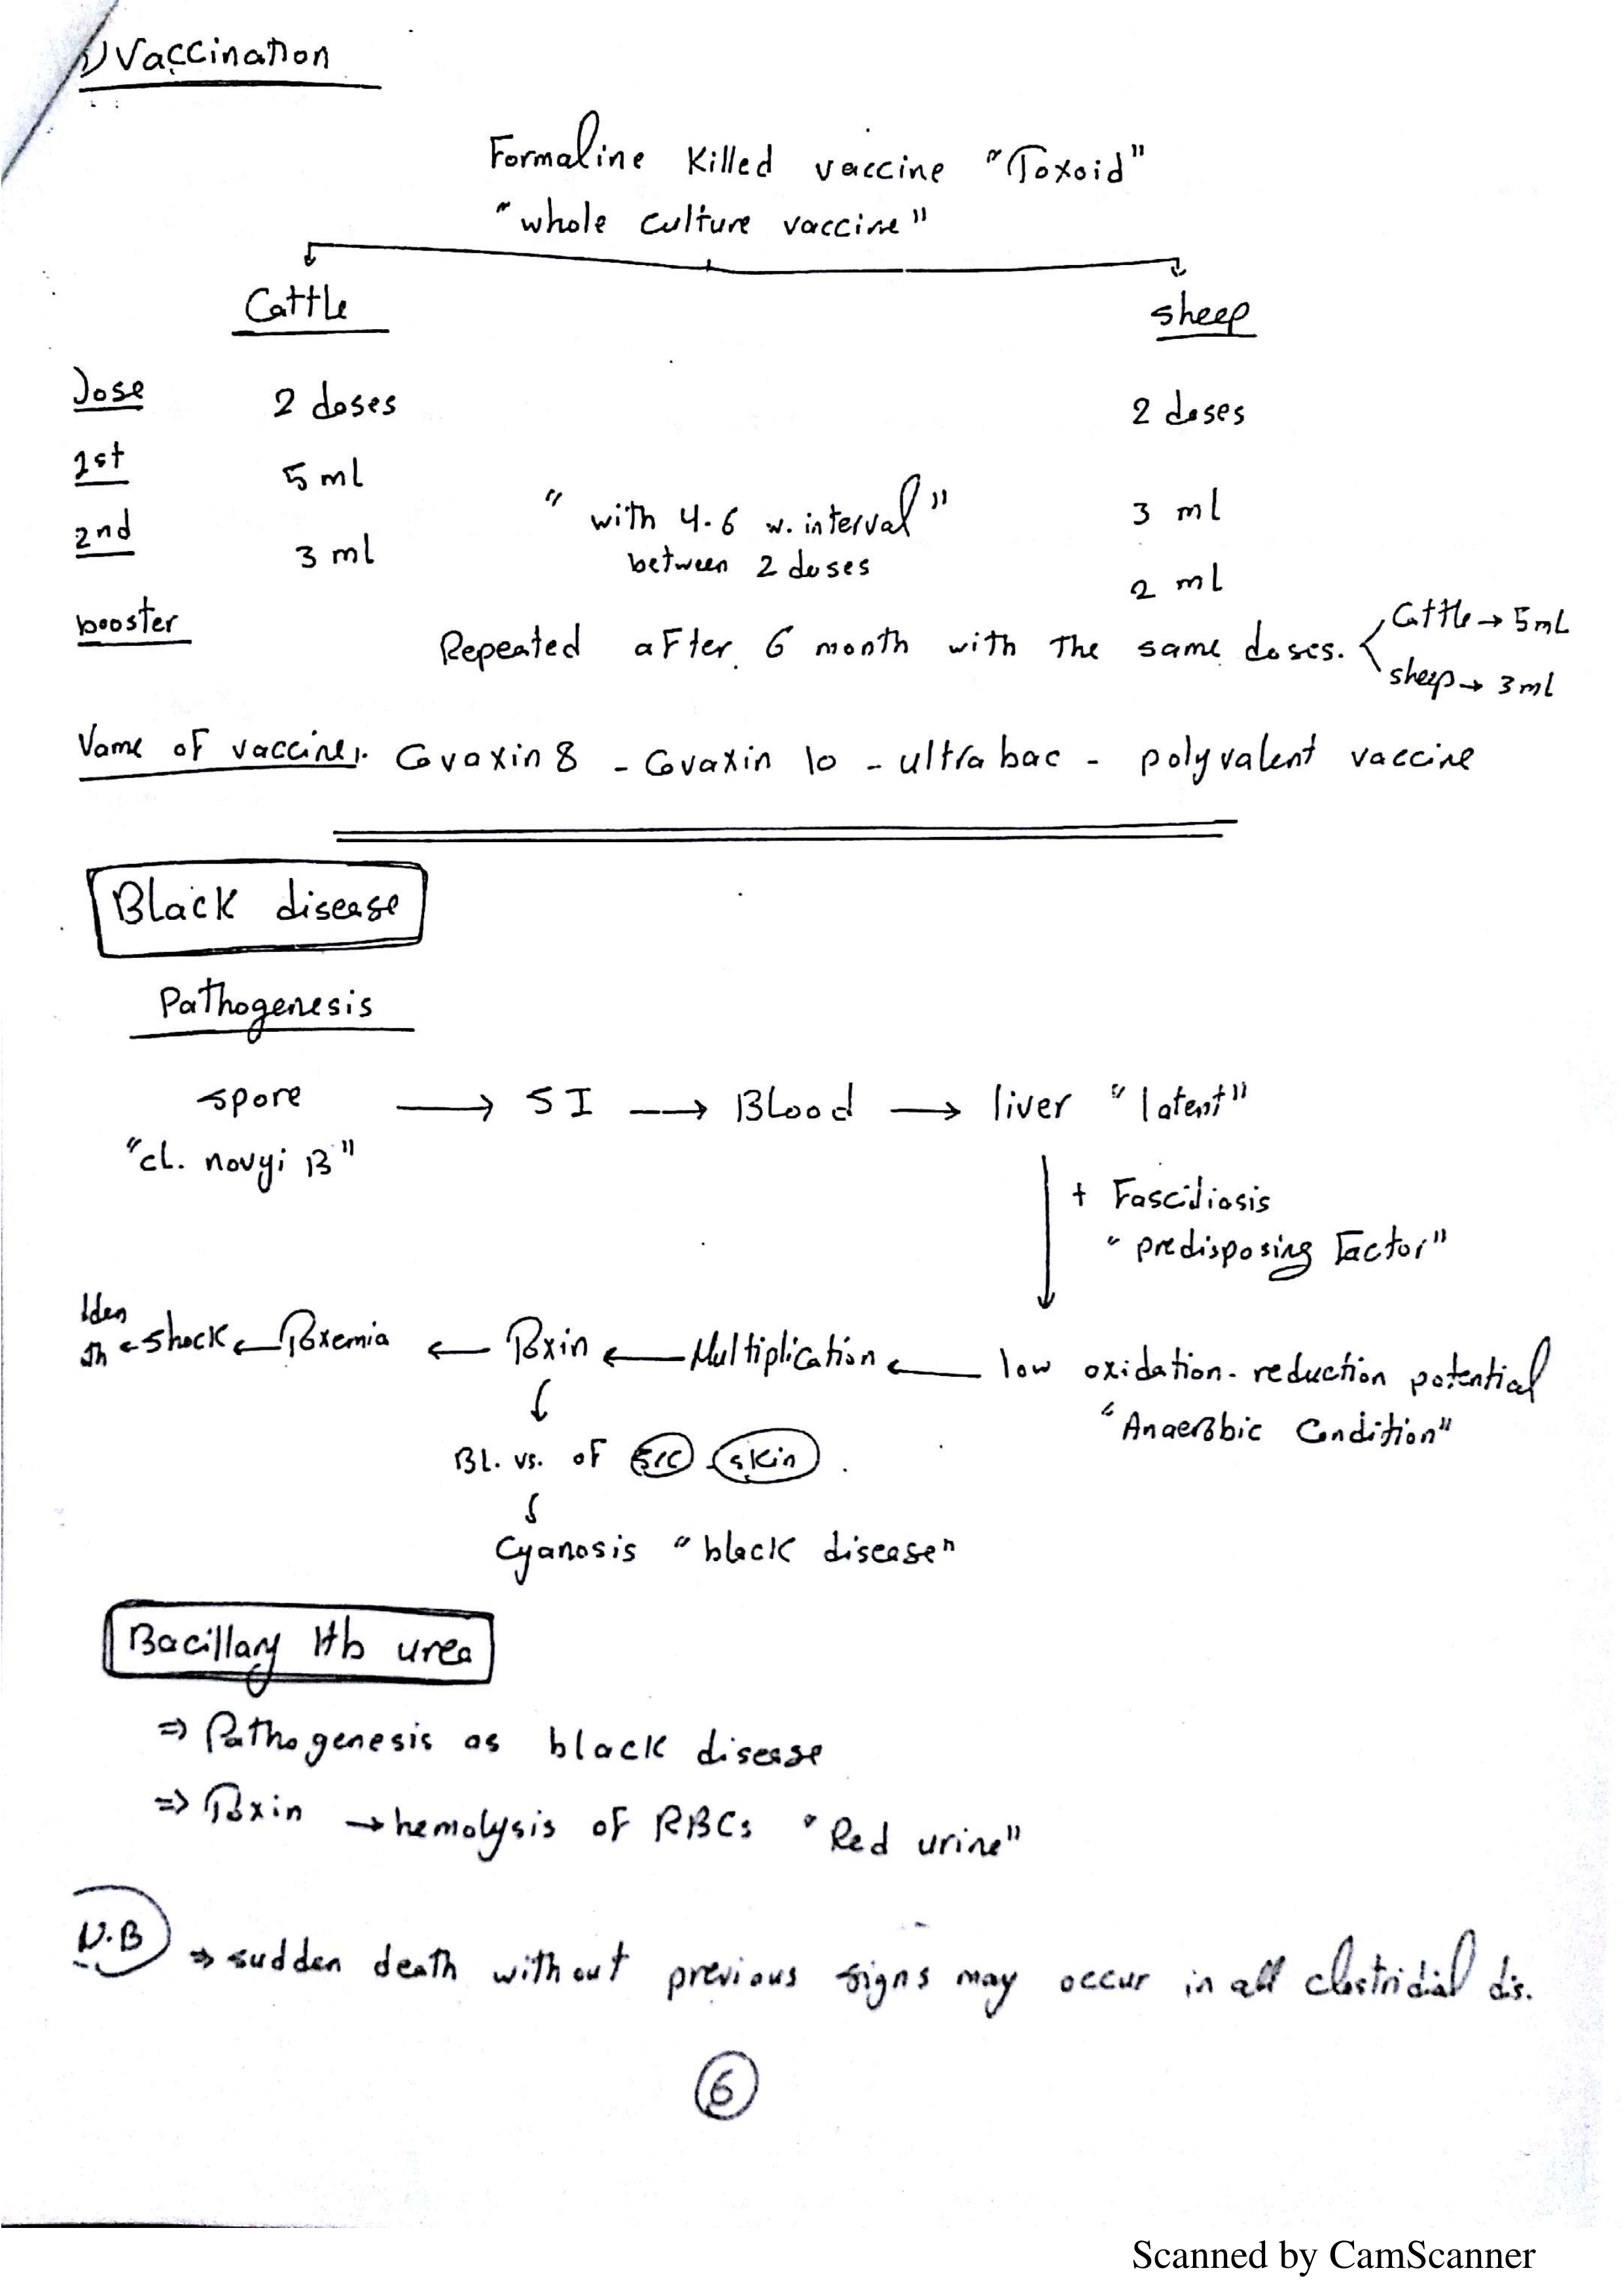 ) Vaccination
Formaline Killed vaccine "Toxoid"
"whole culture vaccine"
Cattle sheep
Dose 2 doses 2 doses
1st 5 ml 3 ml
"with 4-6 w. interval"
between 2 doses
2nd 3 ml 2 ml
booster Repeated after 6 month with the same doses. Cattle → 5 mL
sheep → 3 ml
Name of vaccine:. Covaxin 8 - Covaxin 10 - ultrabac - polyvalent vaccine
Black disease
Pathogenesis
spore → SI → Blood → liver "latent"
"cl. novyi B"
+ Fasciliasis
"predisposing Factor"
low oxidation-reduction potential
"Anaerobic Condition"
← Multiplication ← Toxin ← Toxemia ← shock ←
Bl. vs. of s/c skin.
Cyanosis "black disease"
Bacillary Hb urea
⇒ Pathogenesis as black disease
⇒ Toxin → hemolysis of RBCs "Red urine"
N.B ⇒ sudden death without previous signs may occur in all clostridial dis.
6
Scanned by CamScanner